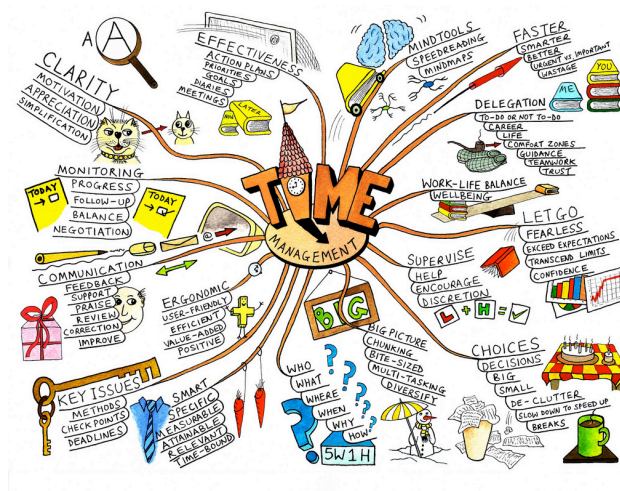 TIME
MANAGEMENT
A
A
CLARITY
MOTIVATION
APPRECIATION
SIMPLIFICATION
EFFECTIVENESS
ACTION PLANS
PRIORITIES
GOALS
DIARIES
MEETINGS
LATER
MINDTOOLS
SPEEDREADING
MINDMAPS
FASTER
SMARTER
BETTER
URGENT VS. IMPORTANT
WASTAGE
YOU
ME
DELEGATION
TO-DO OR NOT TO-DO
CAREER
LIFE
COMFORT ZONES
GUIDANCE
TEAMWORK
TRUST
WORK-LIFE BALANCE
WELLBEING
LET GO
FEARLESS
EXCEED EXPECTATIONS
TRANSCEND LIMITS
CONFIDENCE
SUPERVISE
HELP
ENCOURAGE
DISCRETION
L + H = ✓
CHOICES
DECISIONS
BIG
SMALL
DE-CLUTTER
SLOW DOWN TO SPEED UP
BREAKS
BIG
BIG PICTURE
CHUNKING
BITE-SIZED
MULTI-TASKING
DIVERSIFY
WHO
WHAT
WHERE
WHEN
WHY
HOW
5W1H
SMART
SPECIFIC
MEASURABLE
ATTAINABLE
RELEVANT
TIME-BOUND
KEY ISSUES
METHODS
CHECK POINTS
DEADLINES
ERGONOMIC
USER-FRIENDLY
EFFICIENT
VALUE-ADDED
POSITIVE
COMMUNICATION
FEEDBACK
SUPPORT
PRAISE
REVIEW
CORRECTION
IMPROVE
@
MONITORING
PROGRESS
FOLLOW-UP
BALANCE
NEGOTIATION
TODAY
TODAY